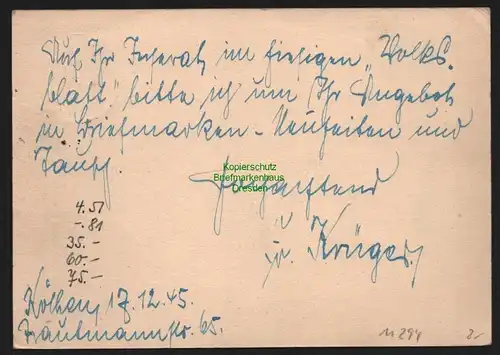 Auf Ihr Inserat im hiesigen „Volks-
blatt" bitte ich um Ihr Angebot
in Briefmarken-Neuheiten und
Tausch.
Hochachtend
Kopierschutz
Briefmarkenhaus
Dresden
Krüger
4.51
-.81
35.-
60.-
75.-
Köthen, 17.12.45.
Trautmannstr. 65.
11294
2.-